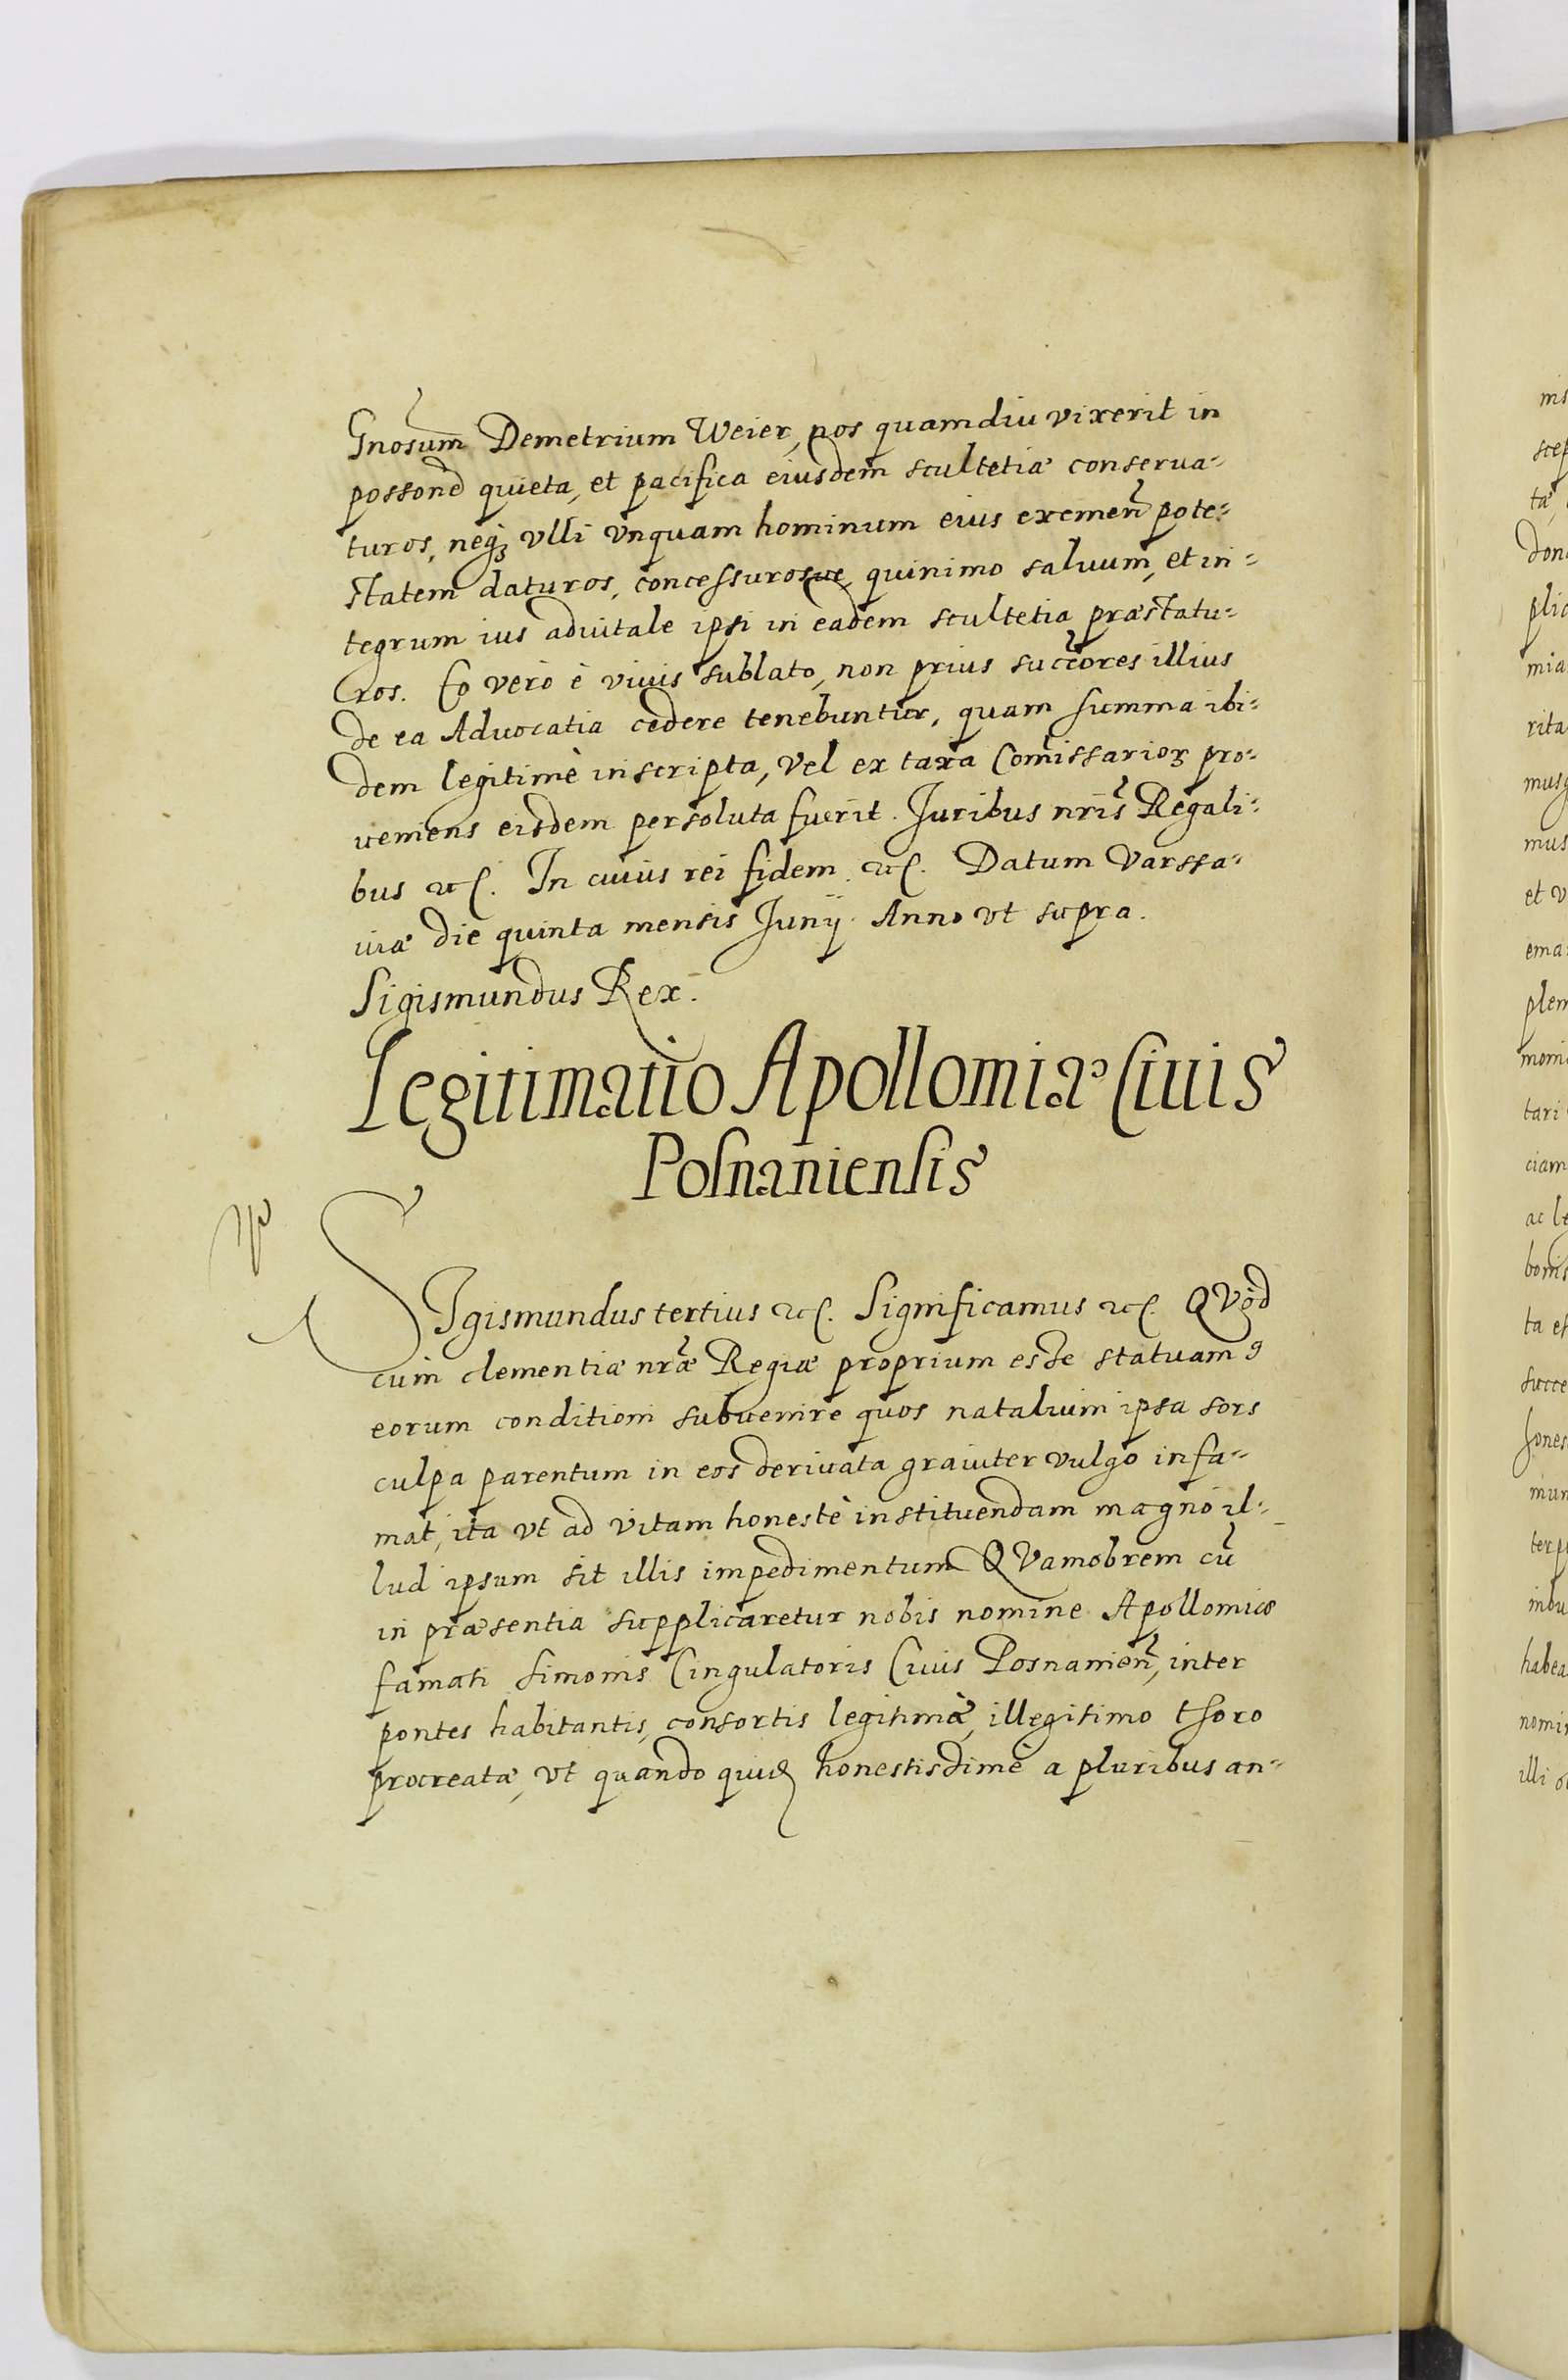 Gnosum Demetrium Weier, nos quamdiu vixerit in
possone quieta, et pacifica eiusdem scultetiæ conserua-
turos, neq; vlli vnquam hominum eius eximen̄ pote-
statem daturos, concessurosue, quinimo saluum, et in-
tegrum ius aduitale ipsi in eadem scultetia præstatu-
ros. Eo verò è viuis sublato, non prius succores illius
de ea Aduocatia cedere tenebuntur, quam summa ibi-
dem legitimè inscripta, vel ex taxa Comissarioꝝ pro-
ueniens eisdem persoluta fuerit. Juribus nris Regali-
bus etc. In cuius rei fidem etc. Datum Varssa-
uiæ die quinta mensis Junij Anno vt supra.
Sigismundus Rex.
Legitimatio Apolloniæ Ciuis
Posnaniensis
SIgismundus tertius etc. Significamus etc. QVòd
cum clementiæ nræ Regiæ proprium esse statuamꝰ
eorum conditioni subuenire quos natalium ipsa sors
culpa parentum in eos deriuata grauiter vulgo infa-
mat, ita vt ad vitam honestè instituendam magno il-
lud ipsum sit illis impedimentum QVamobrem cū
in præsentia supplicaretur nobis nomine Apolloniæ
famati Simonis Cingulatoris Ciuis Posnanien̄, inter
pontes habitantis, consortis legitimæ, illegitimo thoro
procreatæ, vt quando quid honestissimè a pluribus an-